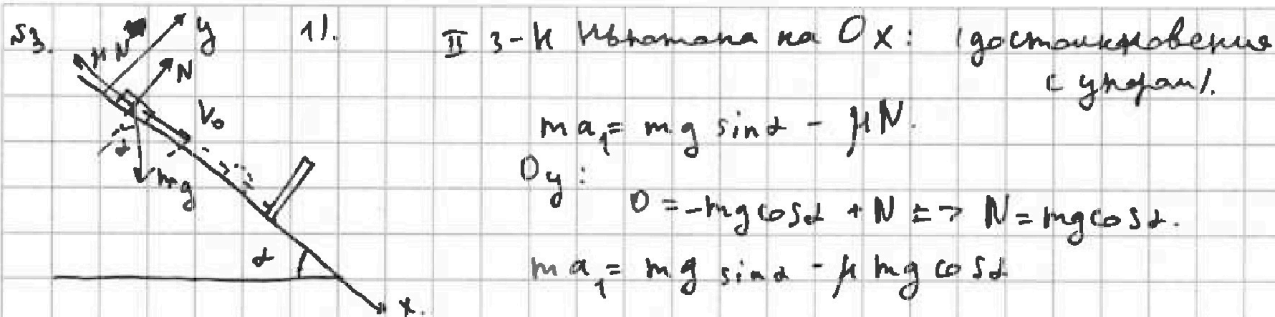 №3. 1).
μN
y
N
V₀
α
mg
α
x.
II з-н Ньютона на Ox: (до столкновения
с упором).
ma₁ = mg sinα - μN.
Oy:
0 = -mg cosα + N => N = mg cosα.
ma₁ = mg sinα - μ mg cosα